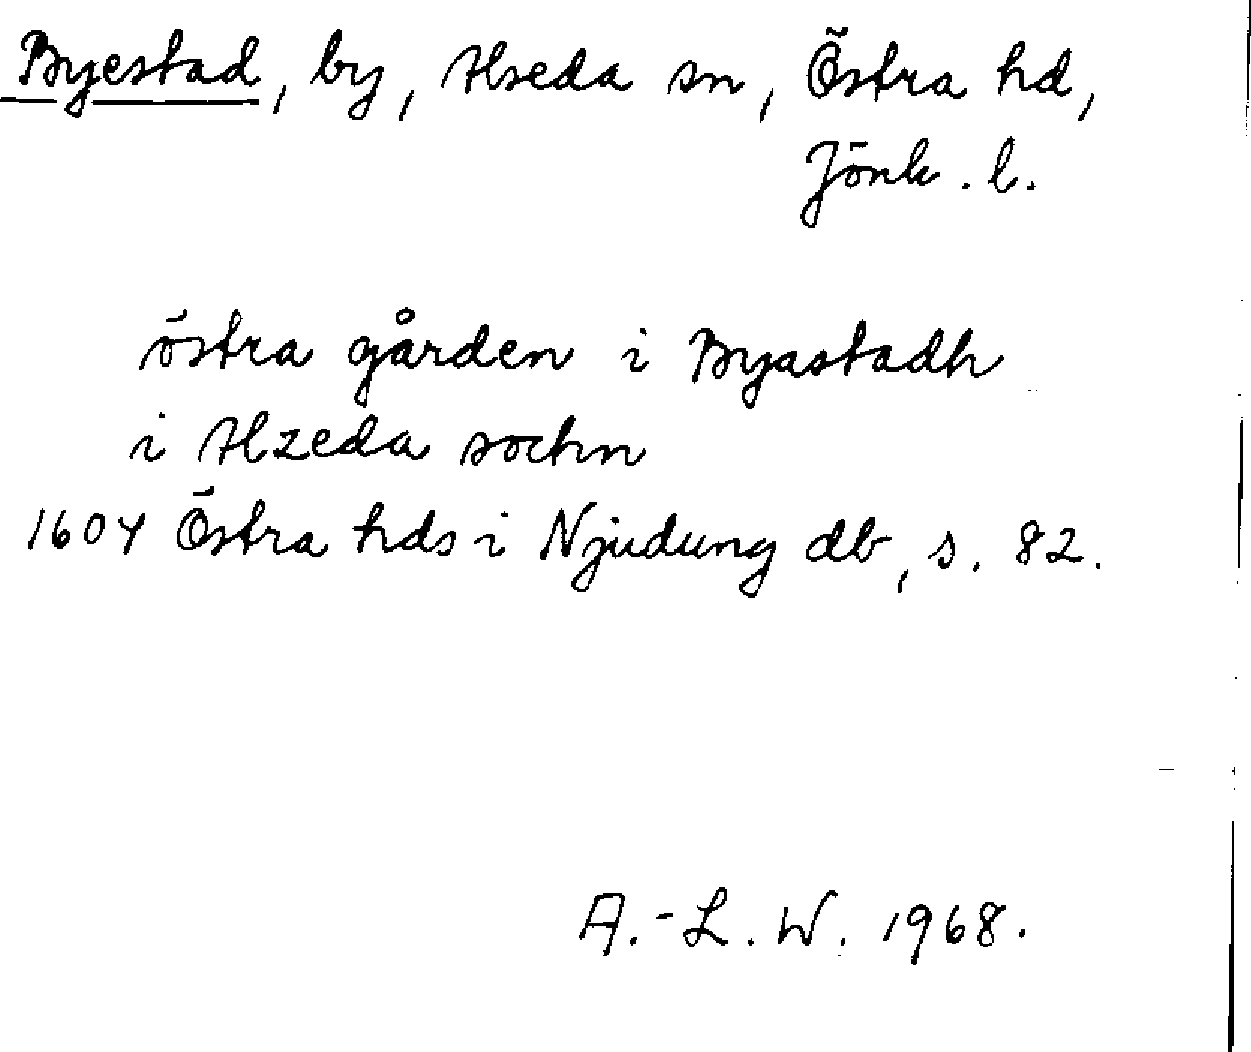 Byestad, by, Alseda sn, Östra hd,
Jönk. l.
östra gården i Byastadh
i Alzeda sochn
1604 Östra hds i Njudung db, s. 82.
A.-L. W. 1968.